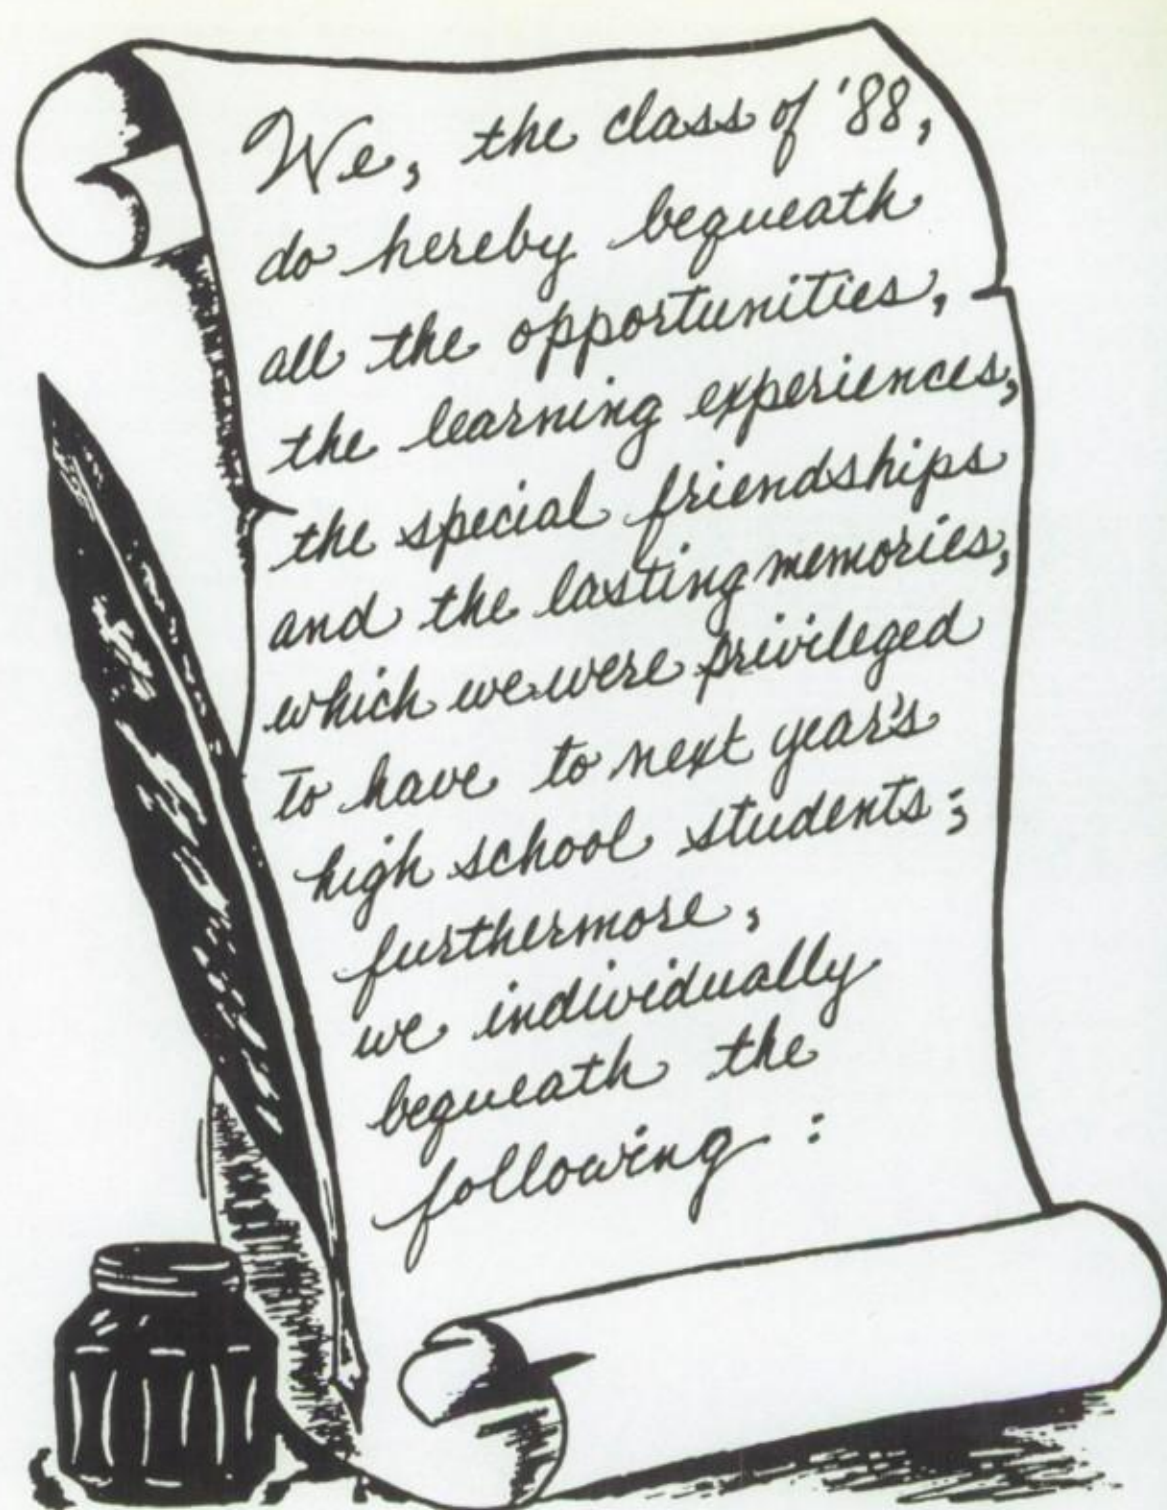 We, the class of '88,
do hereby bequeath
all the opportunities,
the learning experiences,
the special friendships
and the lasting memories,
which we were privileged
to have to next year's
high school students;
furthermore,
we individually
bequeath the
following: